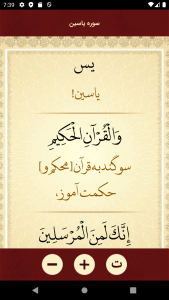 7:39
سوره یاسین
یس
یاسین!
وَالْقُرْآنِ الْحَكِيمِ
سوگند به قرآن [محکم و]
حکمت آموز،
إِنَّكَ لَمِنَ الْمُرْسَلِينَ
− + ت